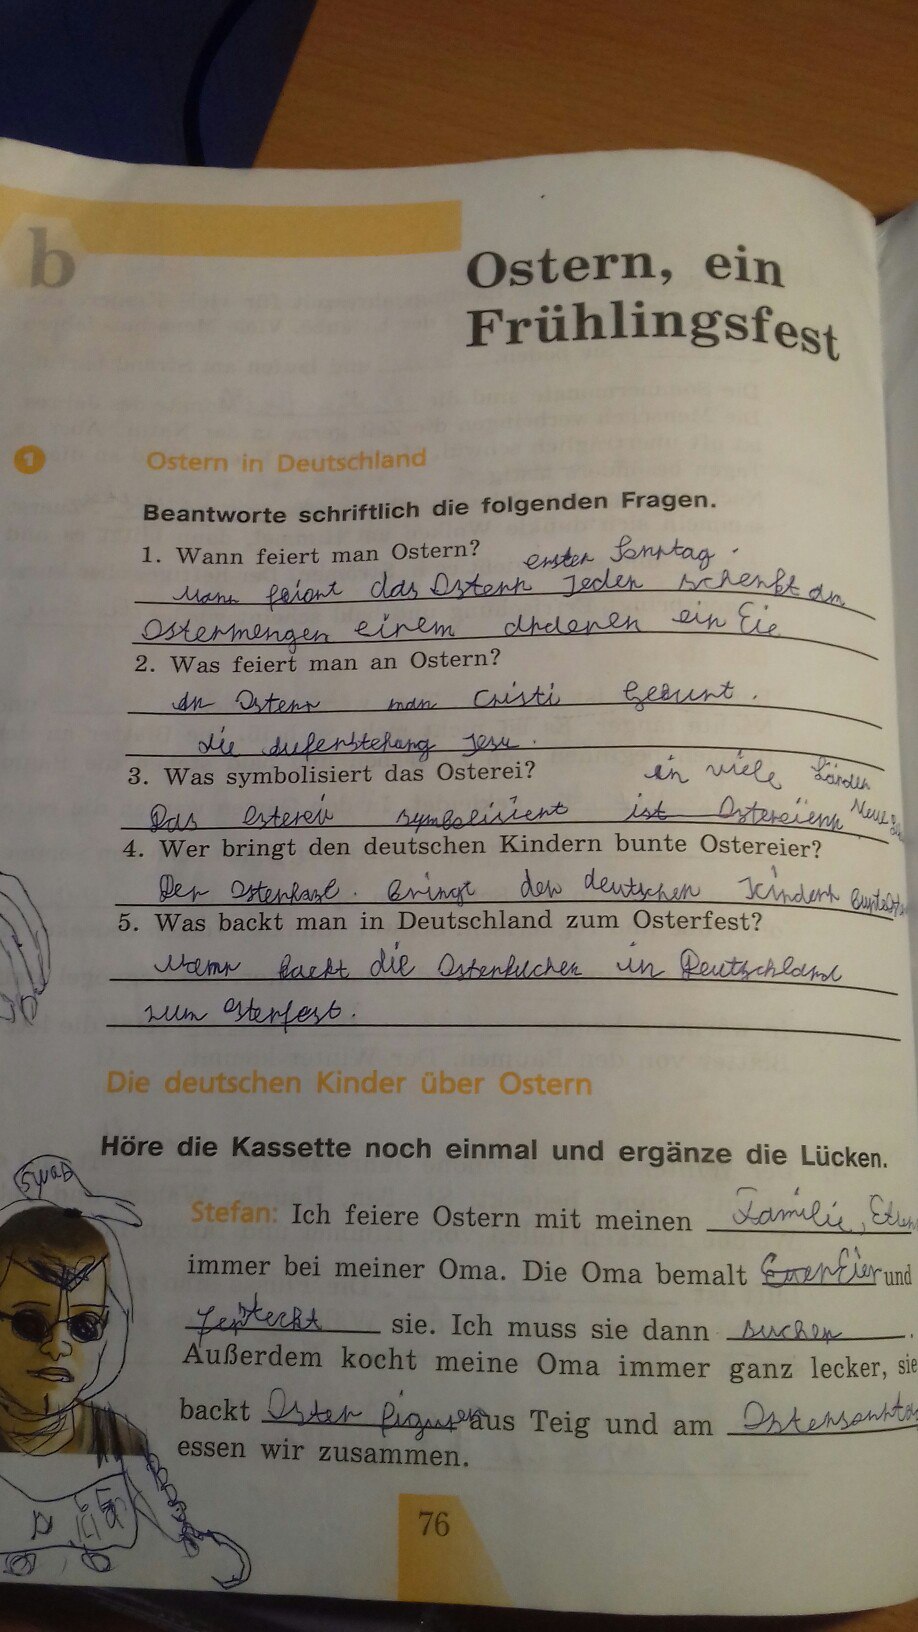 b
Ostern, ein
Frühlingsfest
1 Ostern in Deutschland
Beantworte schriftlich die folgenden Fragen.
1. Wann feiert man Ostern? erster Sonntag.
Mann feiert das Ostern Jeden schenkt am
Ostermengen einem anderen ein Eie
2. Was feiert man an Ostern?
An Ostern man Cristi Geburt.
die Auferstehung Jesu.
3. Was symbolisiert das Osterei? in viele
Das Osterei ist Ostereiern Neue
4. Wer bringt den deutschen Kindern bunte Ostereier?
Der Osterhase. bringt den deutschen Kindern
5. Was backt man in Deutschland zum Osterfest?
Mann backt die Osterkuchen in Deutschland
zum Osterfest.
Die deutschen Kinder über Ostern
Höre die Kassette noch einmal und ergänze die Lücken.
Stefan: Ich feiere Ostern mit meinen Familie,
immer bei meiner Oma. Die Oma bemalt Eier und
sie. Ich muss sie dann suchen.
Außerdem kocht meine Oma immer ganz lecker, sie
backt Oster figuren aus Teig und am Ostersonntag
essen wir zusammen.
76